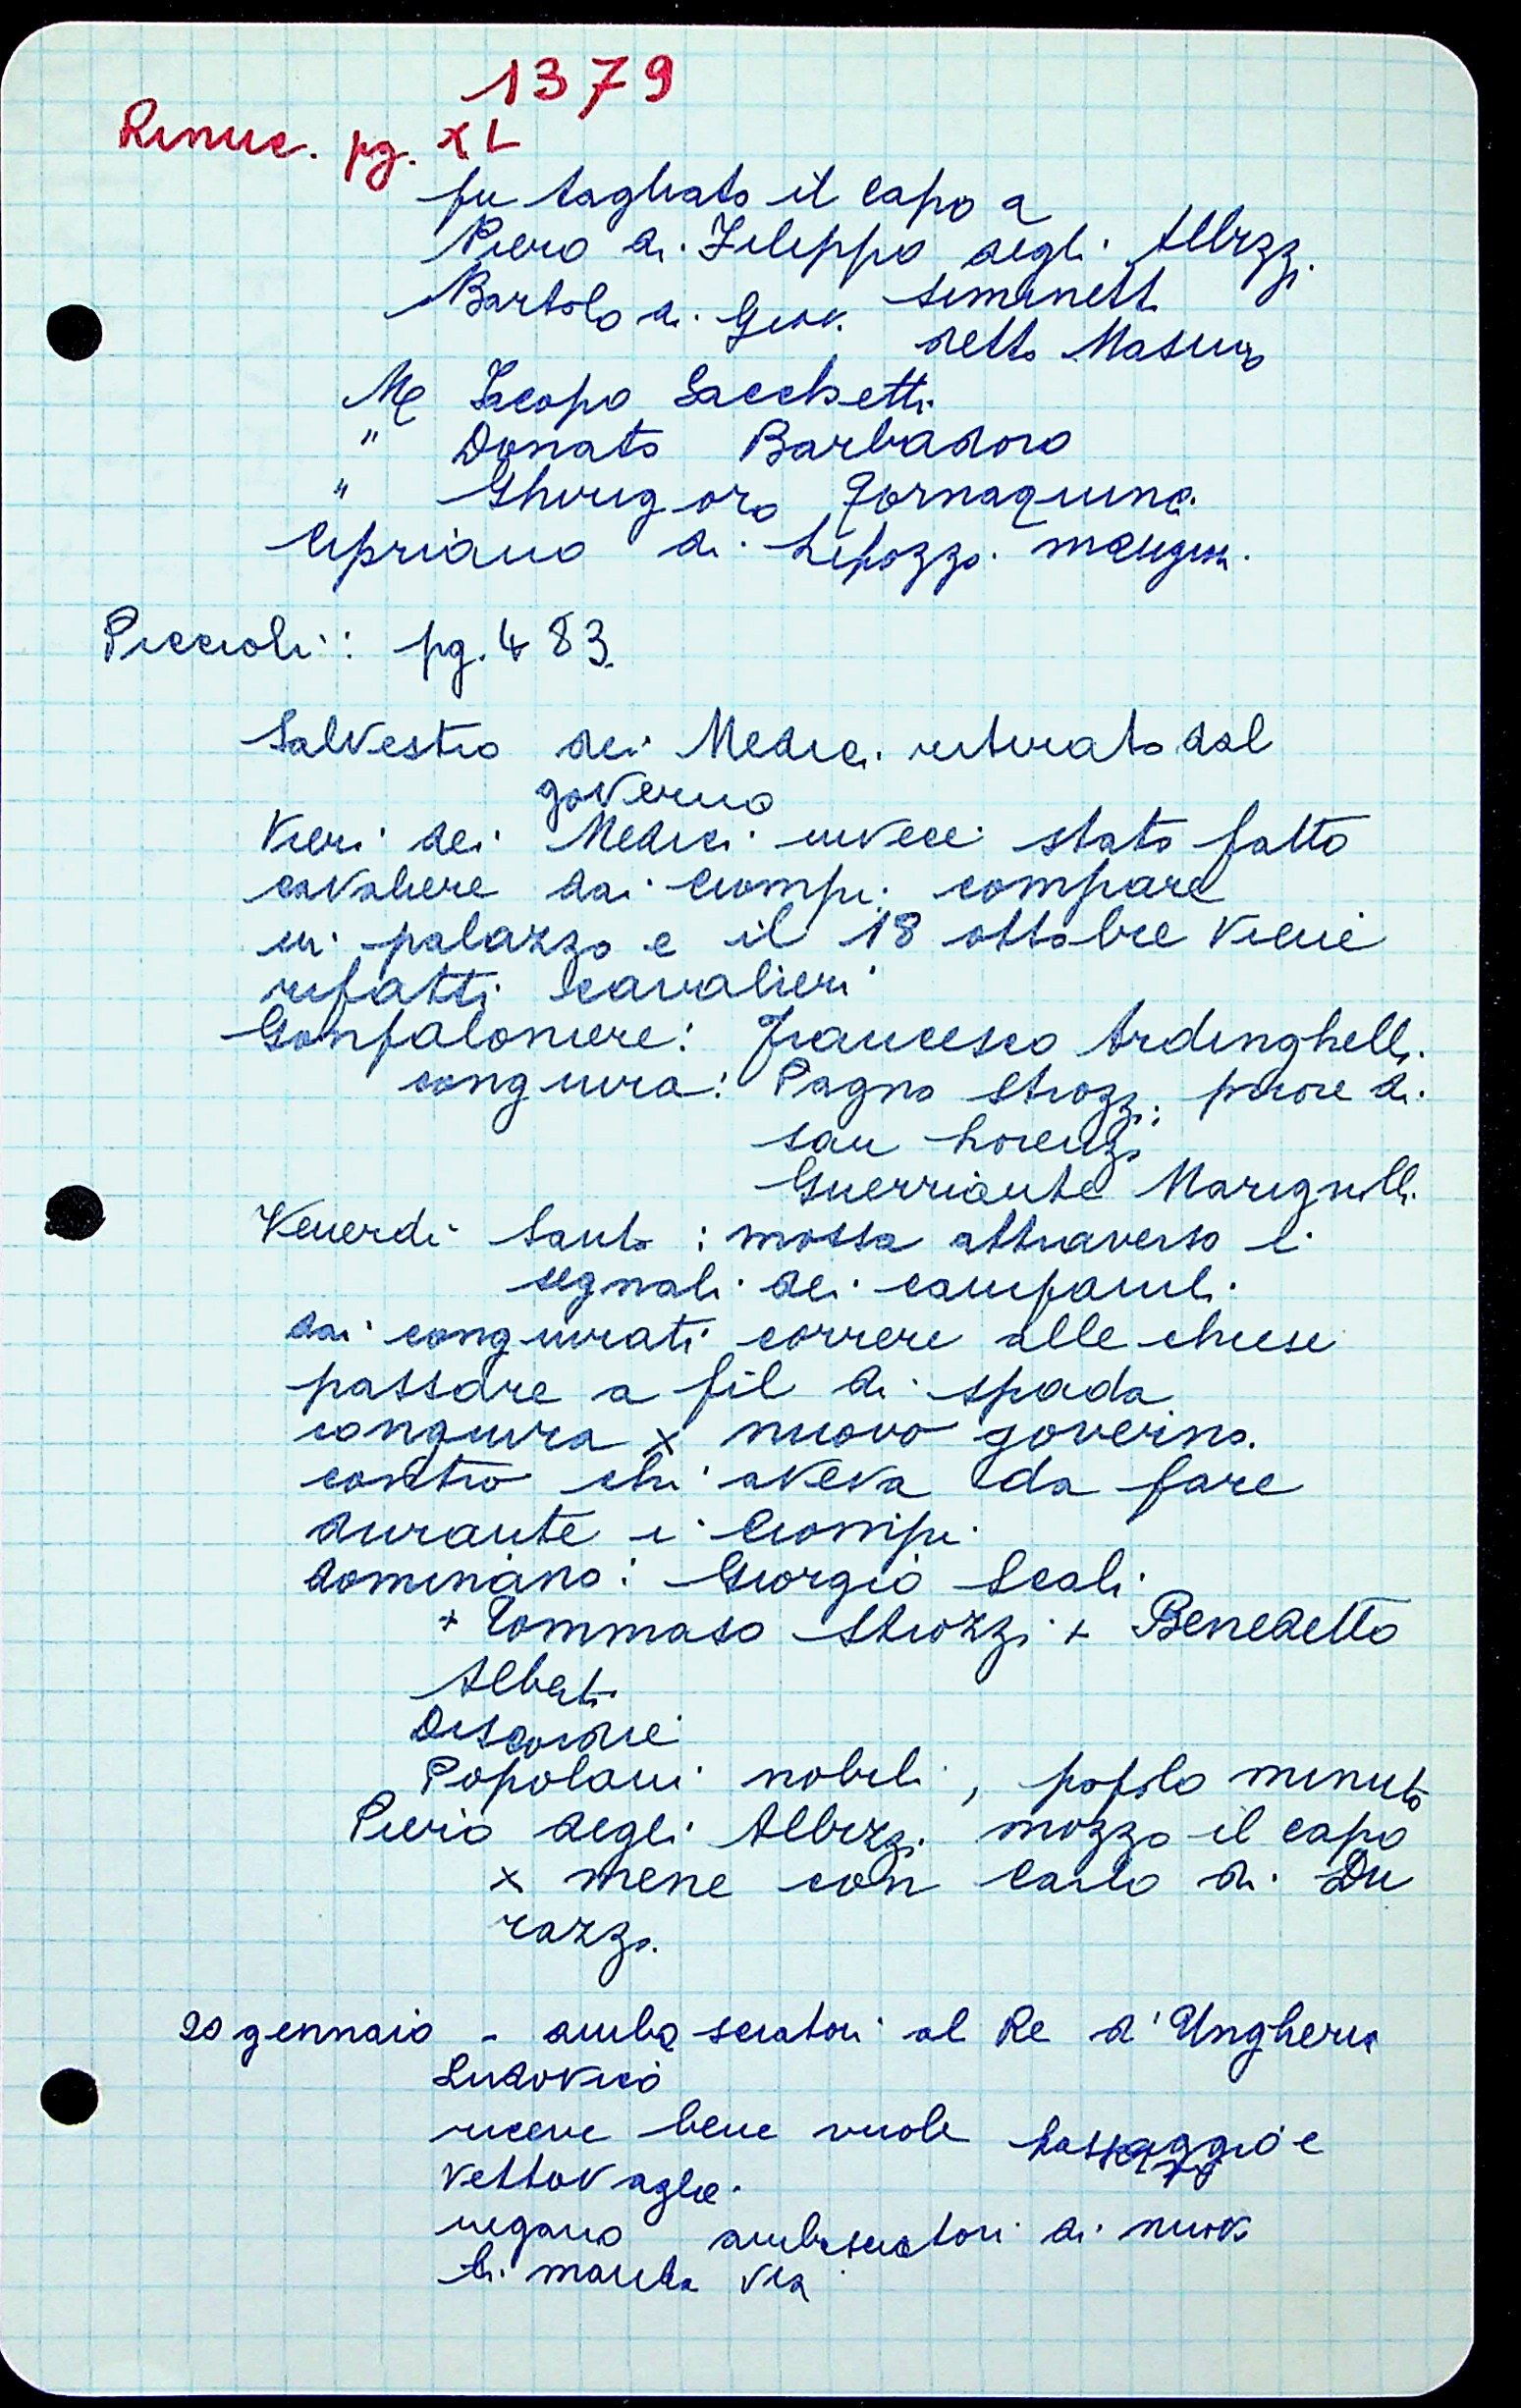 1379
Rinuc. pg. XL
fu tagliato il capo a
Piero di Filippo degli Albizzi
Bartolo di Giov. Siminetti
detto Mastino
M Jacopo Sacchetti
" Donato Barbadoro
" Ghirigoro Tornaquinci
Cipriano di Lipozzo mangioni
Piccioli: pg. 483
Salvestro dei Medici ritirato dal
governo
Vieri dei Medici invece stato fatto
cavaliere dai Ciompi; compare
in palazzo e il 18 ottobre viene
rifatti cavalieri
Gonfaloniere: Francesco Ardinghelli
congiura: Pagno Strozzi; priore di
san Lorenzo
Guerriante Marignolli
Venerdi Santo : mossa attraverso i
segnali dei campanili
dai congiurati correre alle chiese
passare a fil di spada
congiura x nuovo governo.
contro chi aveva da fare
durante i Ciompi
dominano: Giorgio Scali
+ Tommaso Strozzi + Benedetto
Alberti
Discordie
Popolani nobili, popolo minuto
Piero degli Albizzi mozzo il capo
x mene con Carlo di Du
razzo.
20 gennaio - ambasciatori al Re d'Ungheria
Ludovico
riceve bene vuole passaggio e
vettovaglie.
negano ambasciatori di nuovo
li manda via